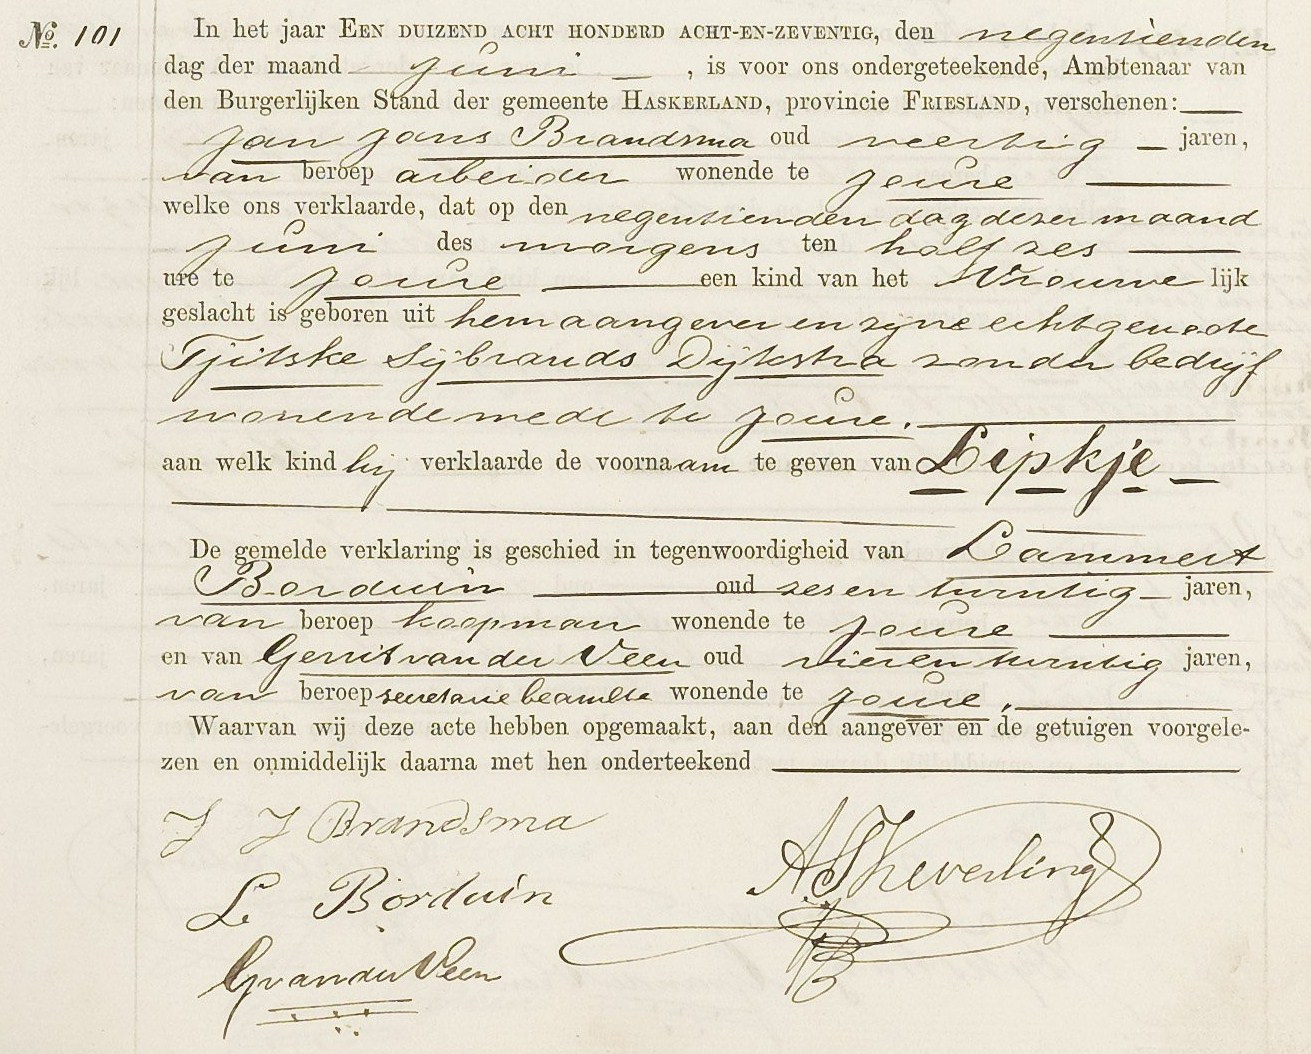 No. 101
In het jaar EEN DUIZEND ACHT HONDERD ACHT-EN-ZEVENTIG, den negentienden
dag der maand Juni, is voor ons ondergeteekende, Ambtenaar van
den Burgerlijken Stand der gemeente HASKERLAND, provincie FRIESLAND, verschenen:
Jan Jans Brandsma oud veertig jaren,
van beroep arbeider wonende te Joure
welke ons verklaarde, dat op den negentienden dag dezer maand
Juni des morgens ten half zes
ure te Joure een kind van het Vrouwelijk
geslacht is geboren uit hem aangever en zijne echtgenoote
Tjitske Sijbrands Dijkstra zonder bedrijf
wonende mede te Joure.
aan welk kind hij verklaarde de voornaam te geven van Lipkje
De gemelde verklaring is geschied in tegenwoordigheid van Lammert
Borduin oud zesentwintig jaren,
van beroep koopman wonende te Joure
en van Gerrit van der Veen oud vierentwintig jaren,
van beroep secretarie beambte wonende te Joure.
Waarvan wij deze acte hebben opgemaakt, aan den aangever en de getuigen voorgele-
zen en onmiddelijk daarna met hen onderteekend
J J Brandsma
L Borduin
G van der Veen